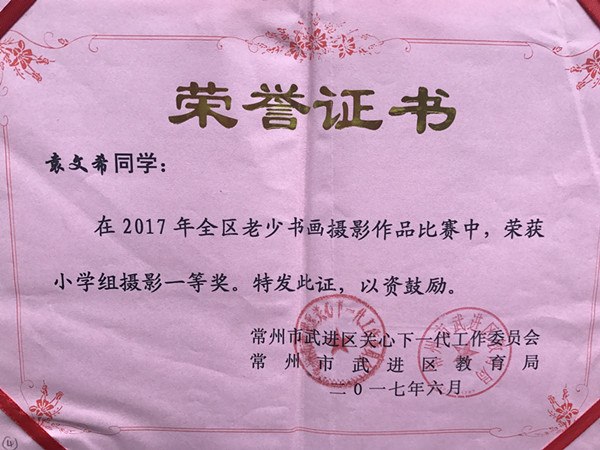 荣誉证书
袁文希同学：
在2017年全区老少书画摄影作品比赛中，荣获
小学组摄影一等奖。特发此证，以资鼓励。
常州市武进区关心下一代工作委员会
常州市武进区教育局
二〇一七年六月